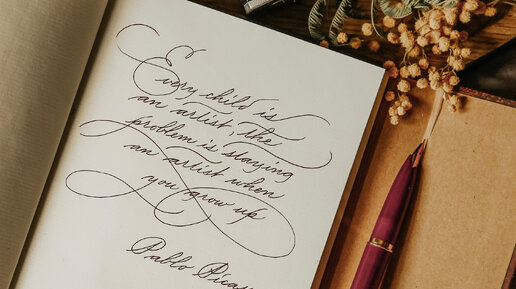 Every child is
an artist, the
problem is staying
an artist when
you grow up
Pablo Picas